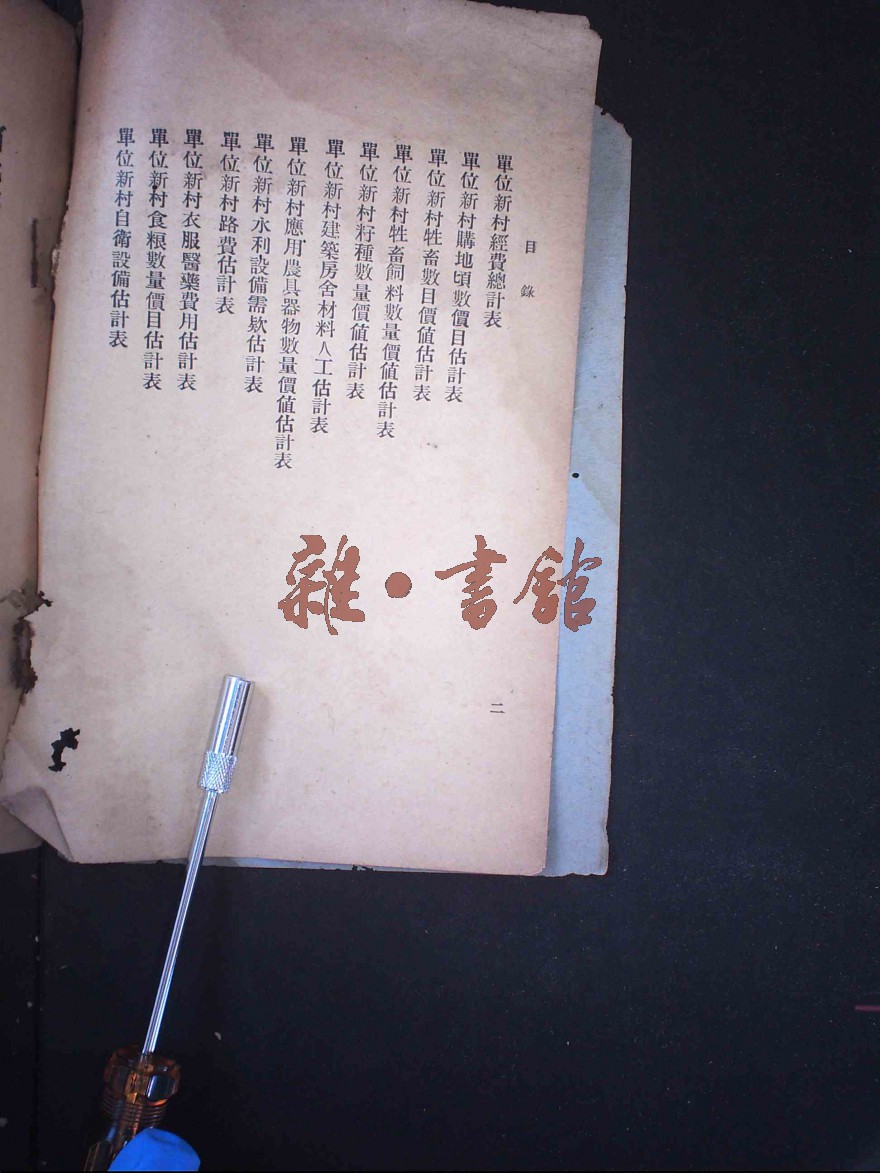 目錄
單位新村經費總計表
單位新村購地頃數價目估計表
單位新村牲畜數目價値估計表
單位新村牲畜飼料數量價値估計表
單位新村籽種數量價値估計表
單位新村建築房舍材料人工估計表
單位新村應用農具器物數量價値估計表
單位新村水利設備需欵估計表
單位新村路費估計表
單位新村衣服醫藥費用估計表
單位新村食粮數量價目估計表
單位新村自衛設備估計表
二
雜·書館